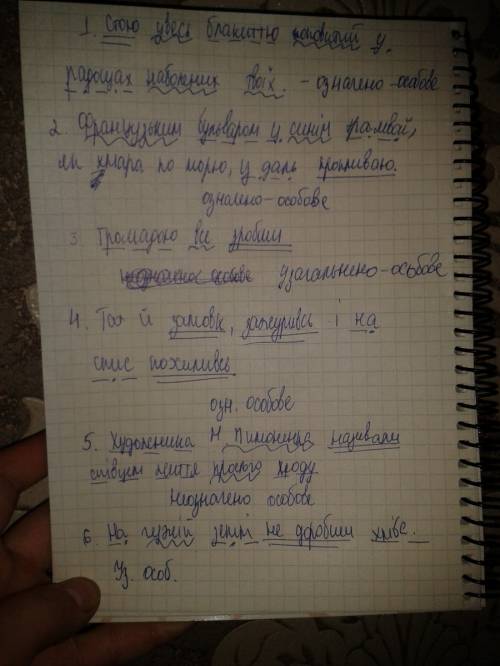 1. Стою увесь блакиттю повитий у
радощах набожних твоїх. - означено-особове
2. Французьким бульваром у синім трамвай,
як хмара по морю, у даль пропливаю.
означено-особове
3. Громадою все зробим
узагальнено-особове
4. Тай й замовк, зажурившсь і на
спис похиливсь.
озн. особове
5. Художника М Пимоненка називали
співцем життя простого люду.
Неозначено особове
6. На чужій землі не доробиш хліба.
Уз. особ.